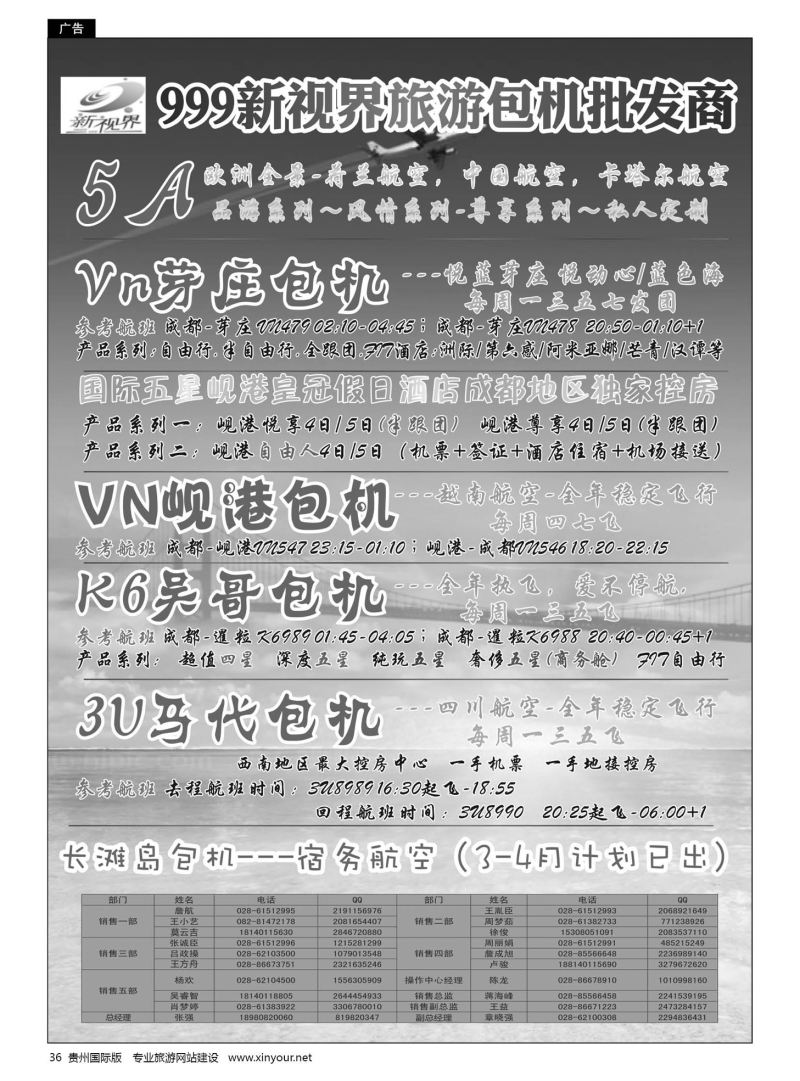 广告
新视界
999新视界旅游包机批发商
5A
欧洲全景-荷兰航空，中国航空，卡塔尔航空
品游系列～风情系列-尊享系列～私人定制
Vn芽庄包机
---悦蓝芽庄 悦动心/蓝色海
每周一三五七发团
参考航班 成都-芽庄VN479 02:10-04:45；成都-芽庄VN478 20:50-01:10+1
产品系列:自由行.半自由行.全跟团.FIT酒店:洲际/第六感/阿米亚娜/芒青/汉谭等
国际五星岘港皇冠假日酒店成都地区独家控房
产品系列一：岘港悦享4日/5日(半跟团) 岘港尊享4日/5日(半跟团)
产品系列二：岘港自由人4日/5日 (机票+签证+酒店住宿+机场接送)
VN岘港包机
---越南航空-全年稳定飞行
每周四七飞
参考航班 成都-岘港VN547 23:15-01:10；岘港-成都VN546 18:20-22:15
K6吴哥包机
---全年执飞，爱不停航，
每周一三五飞
参考航班 成都-暹粒K6989 01:45-04:05；成都-暹粒K6988 20:40-00:45+1
产品系列: 超值四星 深度五星 纯玩五星 奢侈五星(商务舱) FIT自由行
3U马代包机
---四川航空-全年稳定飞行
每周一三五飞
西南地区最大控房中心 一手机票 一手地接控房
参考航班 去程航班时间：3U8989 16:30起飞-18:55
回程航班时间：3U8990 20:25起飞-06:00+1
长滩岛包机---宿务航空（3-4月计划已出）
部门 姓名 电话 QQ 部门 姓名 电话 QQ
销售一部 詹航 028-61512995 2191156976 销售二部 王胤臣 028-61512993 2068921649
王小艺 082-81472178 2081654407 周梦茹 028-61382733 771238926
莫云吉 18140115630 2846720880 徐俊 15308051091 2083537110
销售三部 张诚臣 028-61512996 1215281299 销售四部 周丽娟 028-61512991 485215249
吕政操 028-62103500 1079013548 詹成旭 028-85566648 2236989140
王方舟 028-86673751 2321635246 卢骏 188140115690 3279672620
销售五部 杨欢 028-62104500 1556305909 操作中心经理 陈龙 028-86678910 1010998160
吴睿智 18140118805 2644454933 销售总监 蒋海峰 028-85566458 2241539195
肖梦婷 028-61383922 3306780010 销售副总监 王益 028-86671223 2473284157
总经理 张强 18980820060 819820347 副总经理 章晓强 028-62100308 2294836431
36 贵州国际版 专业旅游网站建设 www.xinyour.net